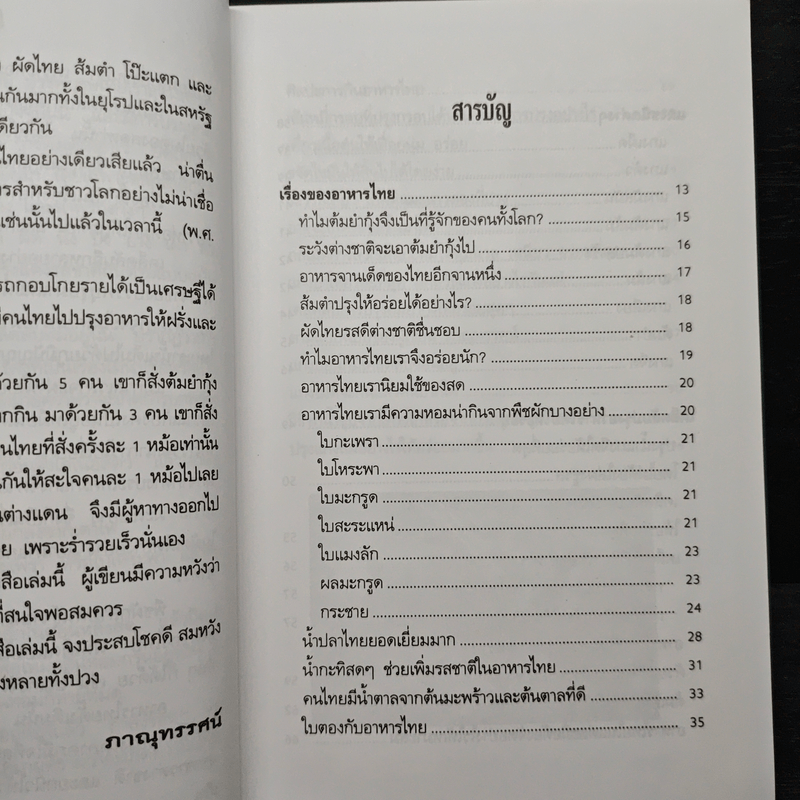 ผัดไทย ส้มตำ โป๊ะแตก และ
นกันมากทั้งในยุโรปและในสหรัฐ
ดียวกัน
ไทยอย่างเดียวเสียแล้ว น่าตื่น
ารสำหรับชาวโลกอย่างไม่น่าเชื่อ
เช่นนั้นไปแล้วในเวลานี้ (พ.ศ.
รถกอบโกยรายได้เป็นเศรษฐีได้
คนไทยไปปรุงอาหารให้ฝรั่งและ
ด้วยกัน 5 คน เขาก็สั่งต้มยำกุ้ง
ากกิน มาด้วยกัน 3 คน เขาก็สั่ง
นไทยที่สั่งครั้งละ 1 หม้อเท่านั้น
นกันให้สะใจคนละ 1 หม้อไปเลย
นต่างแดน จึงมีผู้หาทางออกไป
ย เพราะร่ำรวยเร็วนั่นเอง
สือเล่มนี้ ผู้เขียนมีความหวังว่า
ที่สนใจพอสมควร
สือเล่มนี้ จงประสบโชคดี สมหวัง
งหลายทั้งปวง
ภาณุทรรศน์
สารบัญ
เรื่องของอาหารไทย 13
ทำไมต้มยำกุ้งจึงเป็นที่รู้จักของคนทั้งโลก? 15
ระวังต่างชาติจะเอาต้มยำกุ้งไป 16
อาหารจานเด็ดของไทยอีกจานหนึ่ง 17
ส้มตำปรุงให้อร่อยได้อย่างไร? 18
ผัดไทยรสดีต่างชาติชื่นชอบ 18
ทำไมอาหารไทยเราจึงอร่อยนัก? 19
อาหารไทยเรานิยมใช้ของสด 20
อาหารไทยเรามีความหอมน่ากินจากพืชผักบางอย่าง 20
ใบกะเพรา 21
ใบโหระพา 21
ใบมะกรูด 21
ใบสะระแหน่ 21
ใบแมงลัก 23
ผลมะกรูด 23
กระชาย 24
น้ำปลาไทยยอดเยี่ยมมาก 28
น้ำกะทิสดๆ ช่วยเพิ่มรสชาติในอาหารไทย 31
คนไทยมีน้ำตาลจากต้นมะพร้าวและต้นตาลที่ดี 33
ใบตองกับอาหารไทย 35